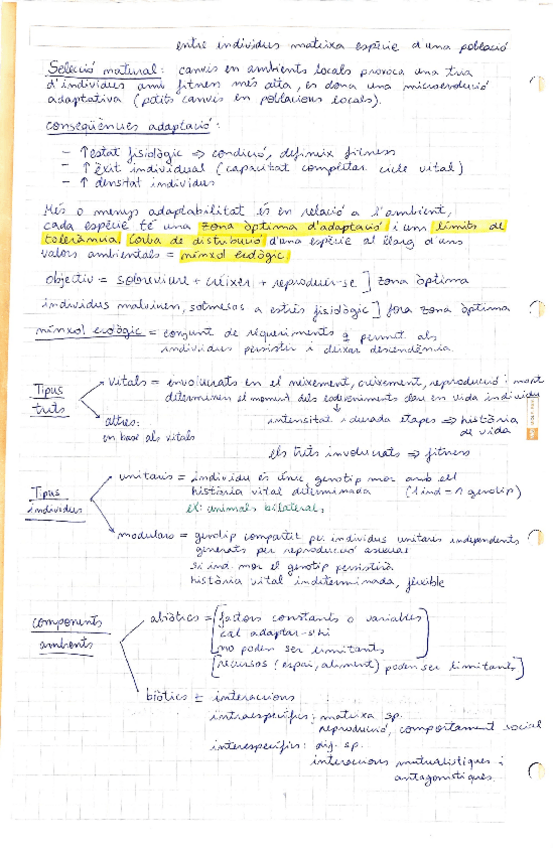 entre individus mateixa espècie d'una població
Selecció natural: canvis en ambients locals provoca una tria
d'individus amb fitness més alta, es dona una microevolució
adaptativa (petits canvis en poblacions locals).
conseqüències adaptació:
- ↑ estat fisiològic ⇒ condició, defineix fitness
- ↑ èxit individual (capacitat completar cicle vital)
- ↑ densitat individus
Més o menys adaptabilitat és en relació a l'ambient,
cada espècie té una zona òptima d'adaptació i uns límits de
tolerància. Corba de distribució d'una espècie al llarg d'uns
valors ambientals = nínxol ecològic.
objectiu = sobreviure + créixer + reproduir-se ] zona òptima
individus malviuen, sotmesos a estrès fisiològic ] fora zona òptima
nínxol ecològic = conjunt de requeriments q permet als
individus persistir i deixar descendència.
Tipus trets
vitals = involucrats en el naixement, creixement, reproducció i mort
determinen el moment dels esdeveniments clau en vida individu
intensitat i durada etapes ⇒ història de vida
altres:
en base als vitals
els trets involucrats ⇒ fitness
Tipus individus
unitaris = individu és únic, genotip mor amb ell
història vital determinada (1 ind = 1 genotip)
ex: animals bilaterals
modulars = genotip compartit per individus unitaris independents
generats per reproducció asexual
si ind. mor el genotip persistirà
història vital indeterminada, flexible
components ambients
abiòtics = [factors constants o variables
cal adaptar-s'hi
no poden ser limitants
[recursos (espai, aliment) poden ser limitants]
biòtics = interaccions
intraespecífics: mateixa sp.
reproducció, comportament social
interespecífics: dif. sp.
interaccions mutualístiques i
antagonístiques.